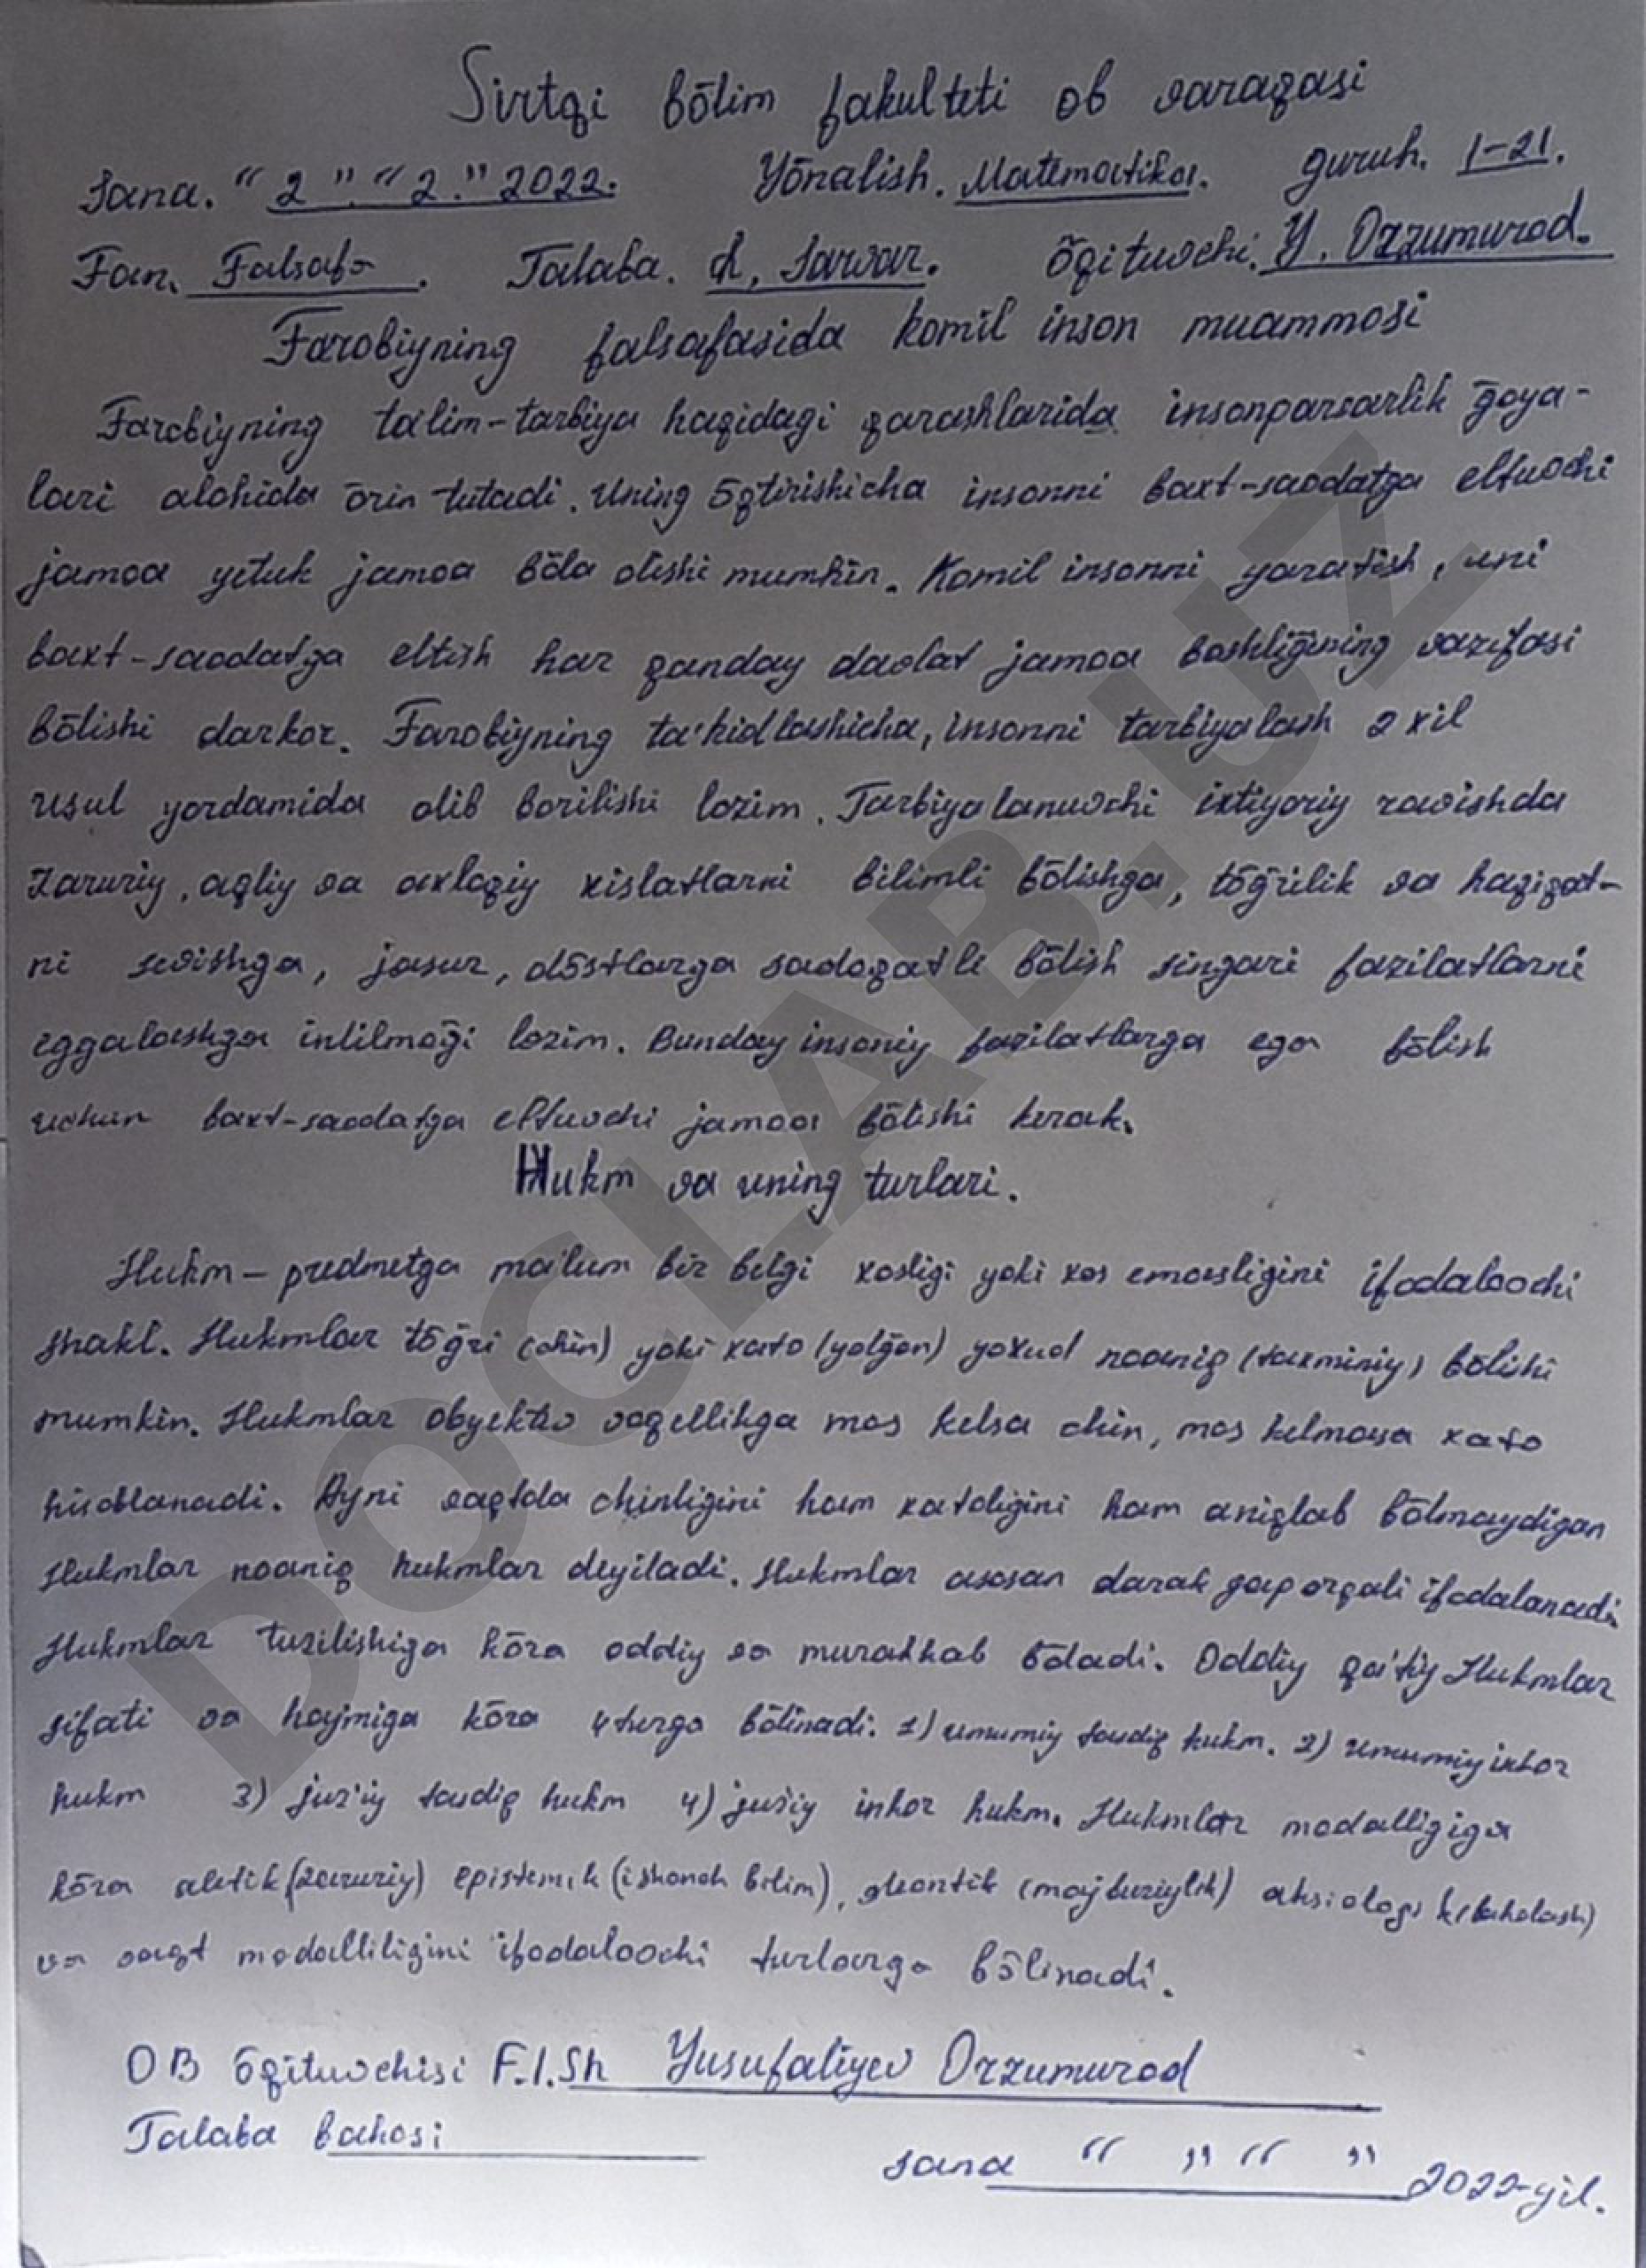 Sirtqi bōlim fakulteti ob varaqasi
Sana. "2" "2." 2022. Yōnalish. Matematika. guruh. 1-21.
Fan. Falsafa. Talaba. Sarvar. ōqituvchi. Y. Orzumurod.
Farobiyning falsafasida komil inson muammosi
Farobiyning ta'lim-tarbiya haqidagi qarashlarida insonparvarlik ḡoya-
lari alohida ōrin tutadi. Uning ōqtirishicha insonni baxt-saodatga eltuvchi
jamoa yetuk jamoa bōla olishi mumkin. Komil insonni yaratish, uni
baxt-saodatga eltish har qanday davlat jamoa boshliḡining vazifasi
bōlishi darkor. Farobiyning ta'kidlashicha, insonni tarbiyalash 2 xil
usul yordamida olib borilishi lozim. Tarbiyalanuvchi ixtiyoriy ravishda
zaruriy, aqliy va axloqiy xislatlarni bilimli bōlishga, tōḡrilik va haqiqat-
ni sevishga, jasur, dōstlarga sadoqatli bōlish singari fazilatlarni
eggalashga intilmoḡi lozim. Bunday insoniy fazilatlarga ega bōlish
uchun baxt-saodatga eltuvchi jamoa bōlishi kerak.
Hukm va uning turlari.
Hukm – predmetga ma'lum bir belgi xosligi yoki xos emasligini ifodalovchi
shakl. Hukmlar tōḡri (chin) yoki xato (yolḡon) yoxud noaniq (taxminiy) bōlishi
mumkin. Hukmlar obyektiv voqellikga mos kelsa chin, mos kelmasa xato
hisoblanadi. Ayni vaqtda chinligini ham xatoligini ham aniqlab bōlmaydigan
Hukmlar noaniq hukmlar deyiladi. Hukmlar asosan darak gap orqali ifodalanadi.
Hukmlar tuzilishiga kōra oddiy va murakkab bōladi. Oddiy qa'tiy Hukmlar
sifati va hajmiga kōra 4 turga bōlinadi. 1) umumiy tasdiq hukm. 2) umumiy inkor
hukm 3) juz'iy tasdiq hukm 4) juz'iy inkor hukm. Hukmlar modalligiga
kōra aletik (zaruriy) epistemik (ishonch bilim), (majburiylik) aksiologik (baholash)
va vaqt modalliligini ifodalovchi turlarga bōlinadi.
OB ōqituvchisi F.I.Sh Yusufaliyev Orzumurod
Talaba bahosi
sana " " " " 2022-yil.
DOCLAB.UZ